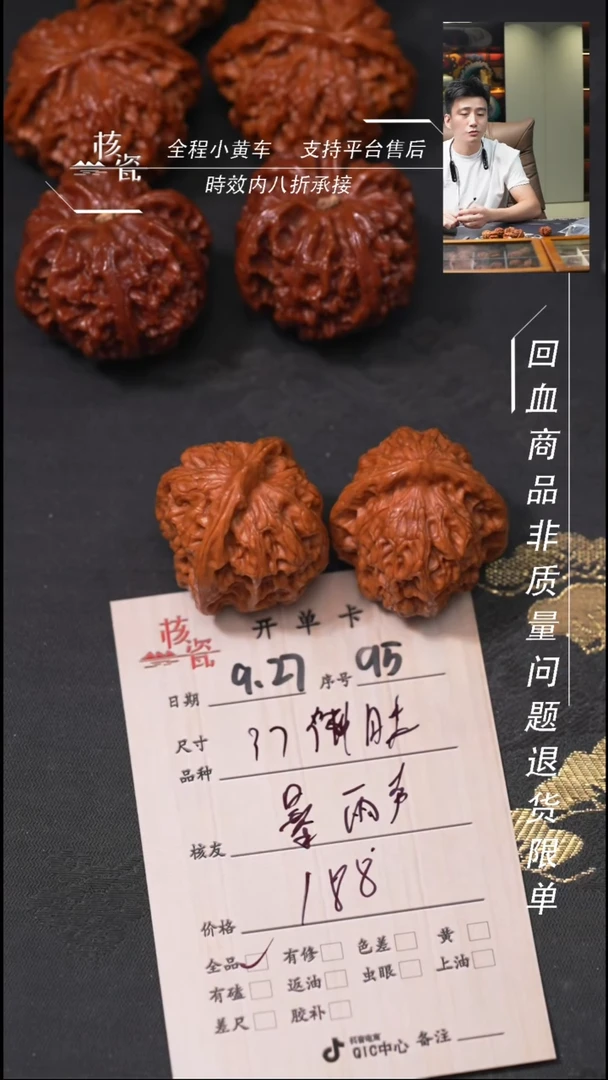 核瓷
全程小黄车 支持平台售后
時效内八折承接
回血商品非质量问题退货限单
核瓷
开单卡
日期 9.27 序号 95
尺寸 37
品种
核友 暴雨声
价格 188
全品 有修 色差 黄
有磕 返油 虫眼 上油
差尺 胶补
抖音电商
QIC中心 备注